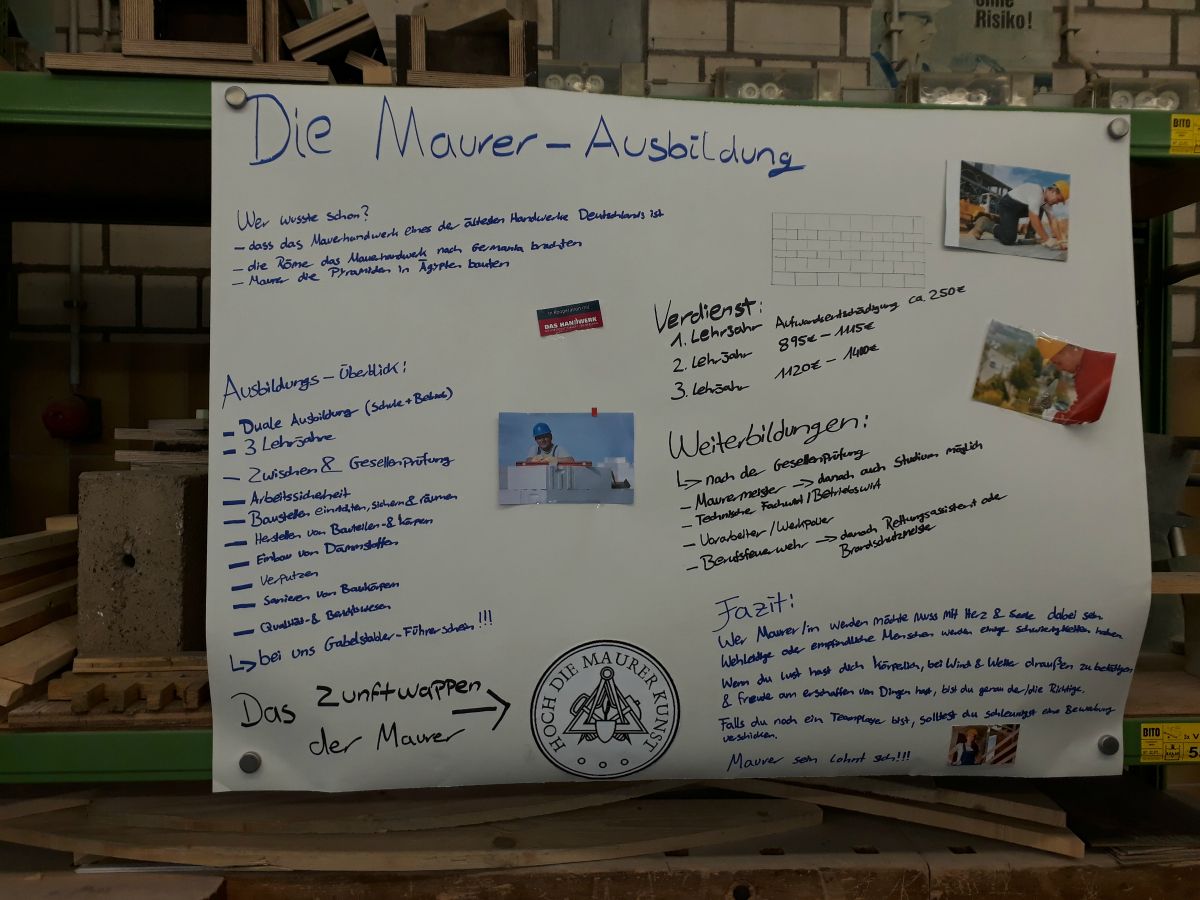 ohne
Risiko!
BITO
Die Maurer-Ausbildung
Wer wusste schon?
- dass das Maurerhandwerk eines der ältesten Handwerke Deutschlands ist
- die Röme das Maurerhandwerk nach Germania brachten
- Maurer die Pyramiden in Ägypten bauten
In Kooperation mit
DAS HANDWERK
Ausbildungs-Überblick:
- Duale Ausbildung (Schule + Betrieb)
- 3 Lehrjahre
- Zwischen & Gesellenprüfung
- Arbeitssicherheit
- Baustellen einrichten, sichern & räumen
- Herstellen von Bauteilen- & körpern
- Einbau von Dämmstoffen
- Verputzen
- Sanieren von Baukörpern
- Qualität- & Berichtswesen
↳ bei uns Gabelstabler-Führerschein!!!
Das Zunftwappen
der Maurer
HOCH DIE MAURER KUNST
Verdienst:
1. Lehrjahr Aufwandsentschädigung ca. 250€
2. Lehrjahr 895€ - 1115€
3. Lehrjahr 1120€ - 1400€
Weiterbildungen:
↳ nach der Gesellenprüfung
- Maurermeister → danach auch Studium möglich
- Technische Fachwirt / Betriebswirt
- Vorarbeiter / Werkpolier
- Berufsfeuerwehr → danach Rettungsassistent oder
Brandschutzmeister
Fazit:
Wer Maurer/in werden möchte muss mit Herz & Seele dabei sein.
Wehleidige oder empfindliche Menschen werden einige Schwierigkeiten haben.
Wenn du lust hast dich körperlich, bei Wind & Wetter draußen zu betätigen
& freude am erschaffen von Dingen hast, bist du genau der/die Richtige.
Falls du noch ein Teamplayer bist, solltest du schleunigst eine Bewerbung
verschicken.
Maurer sein lohnt sich!!!
BITO